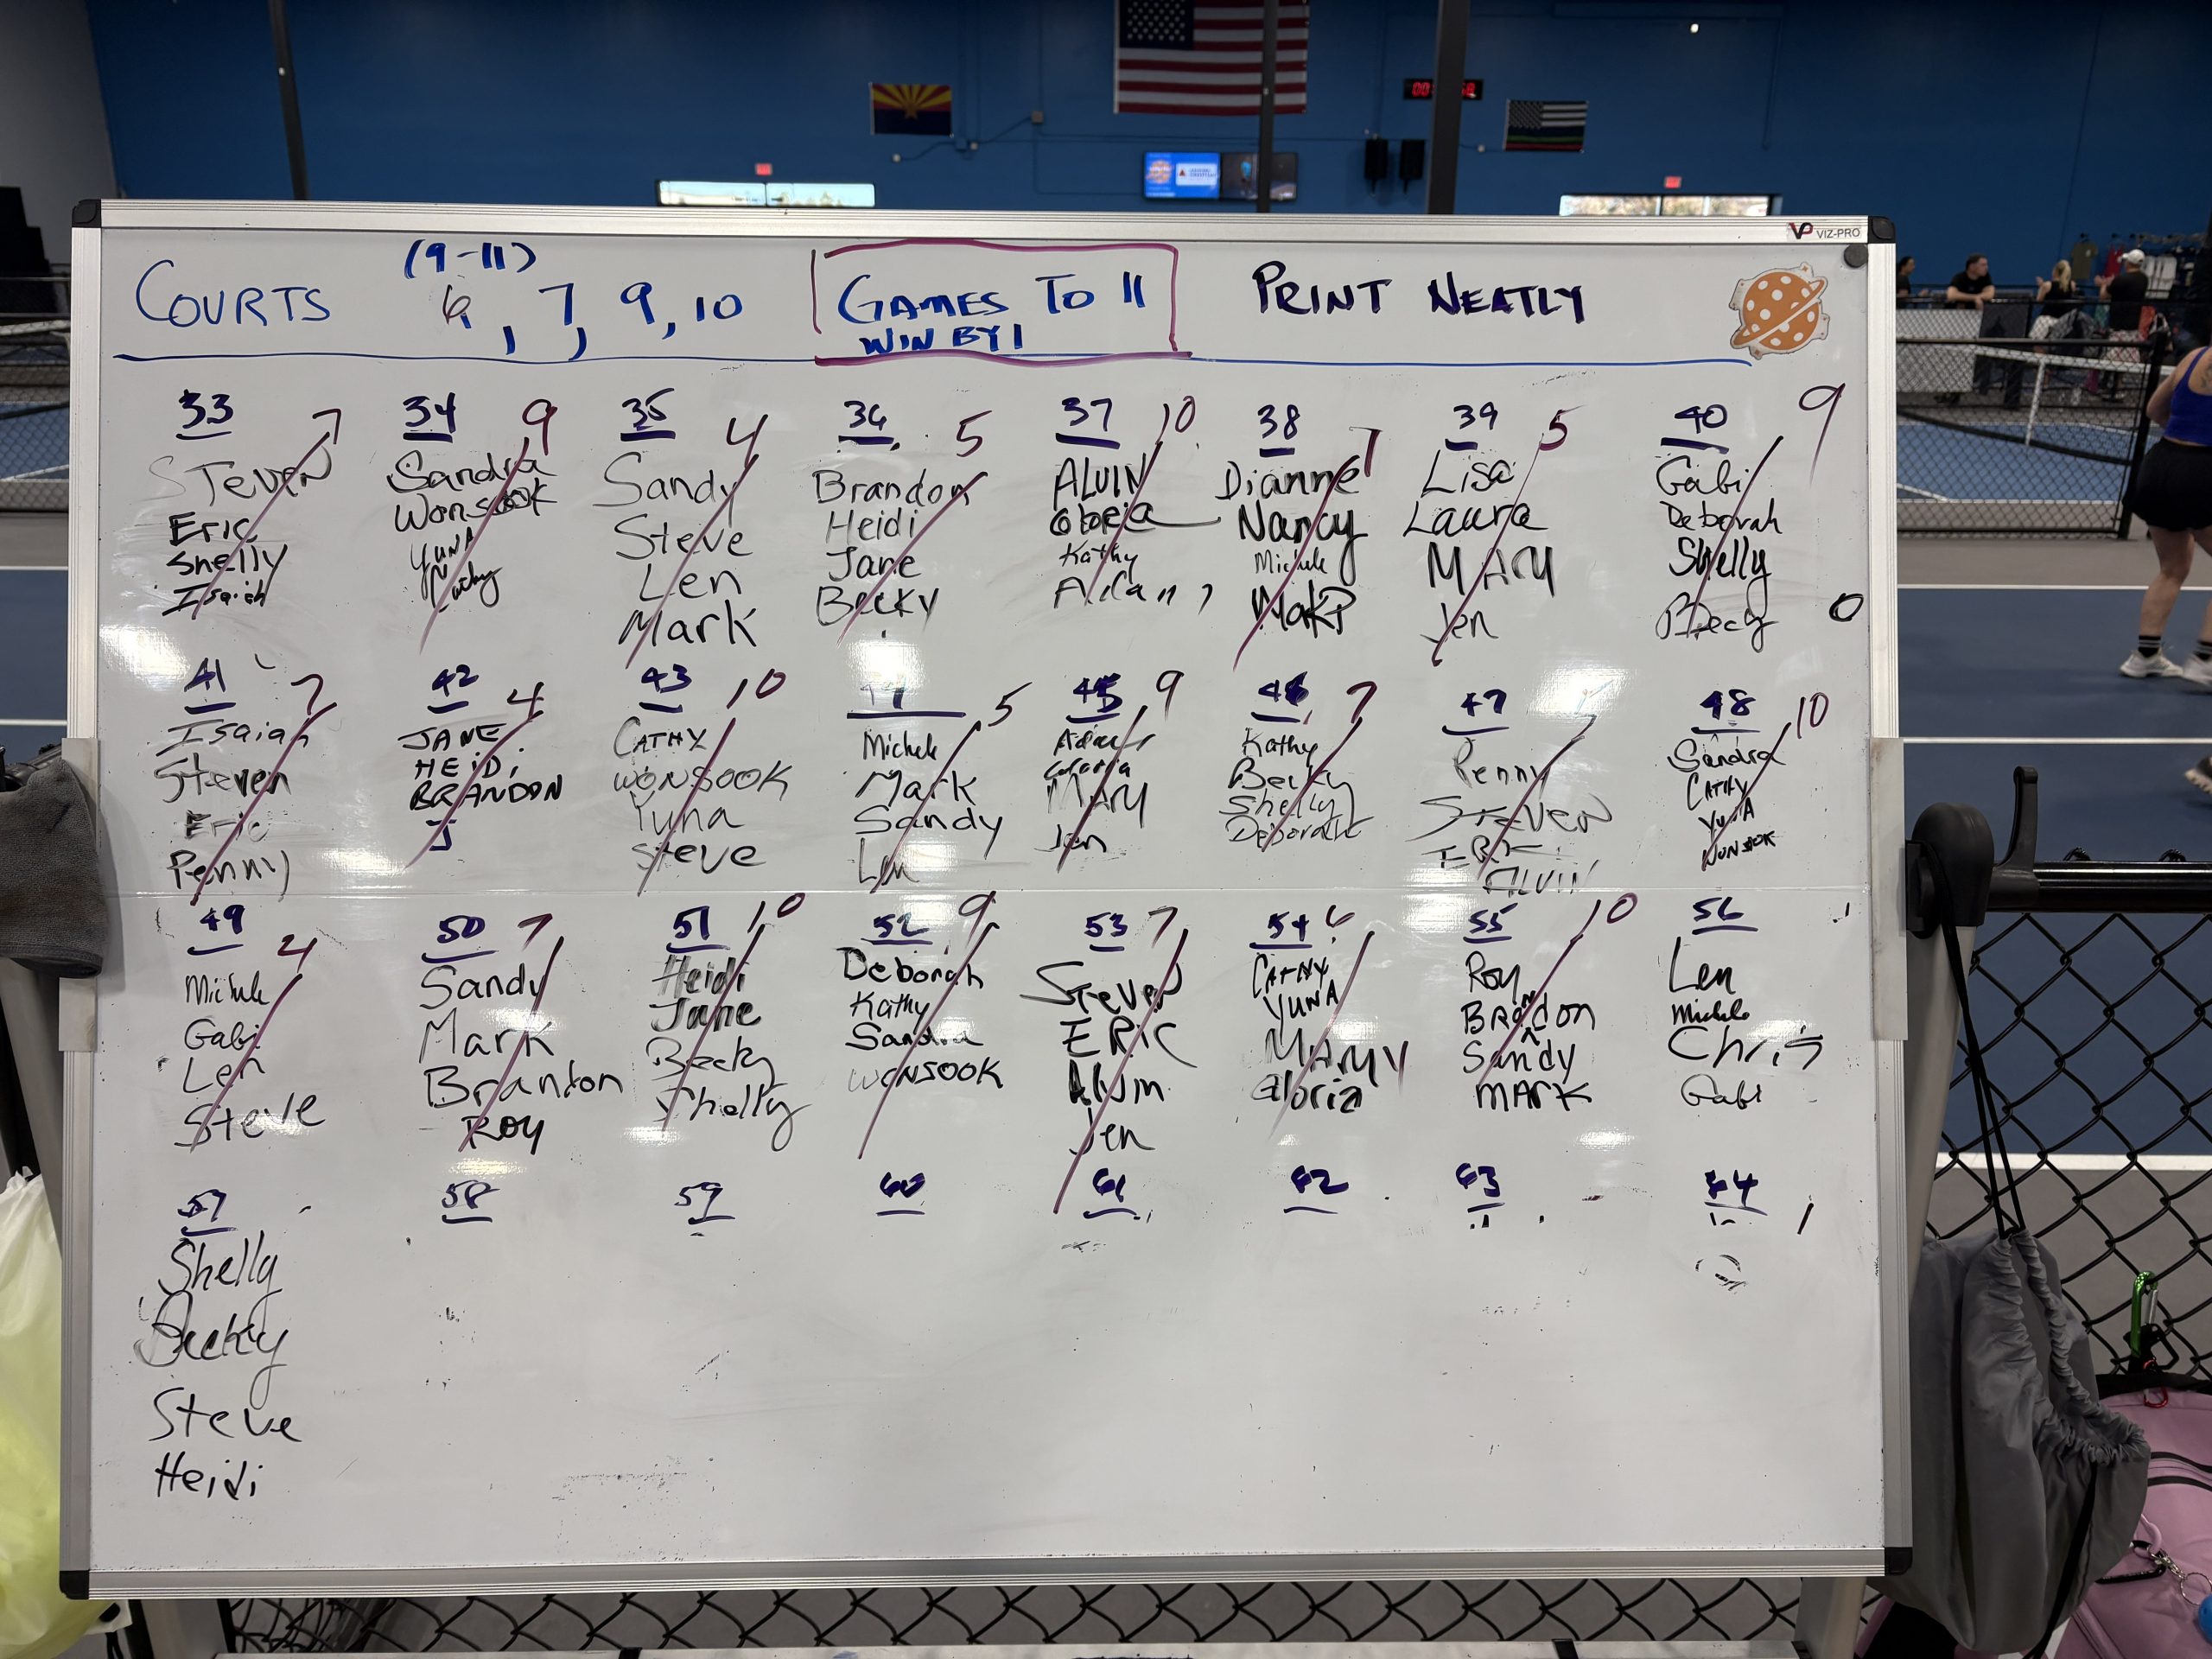 VIZ-PRO
(9-11)
COURTS 6, 7, 9, 10
GAMES TO 11
WIN BY 1
PRINT NEATLY
33 7
STEVEN
Eric
Shelly
Isaiah
34 9
Sandra
Wonsook
YUNA
Cathy
35 4
Sandy
Steve
Len
Mark
36 5
Brandon
Heidi
Jane
Becky
37 10
ALVIN
Gloria
Kathy
Adam
38 7
Dianne
Nancy
Michele
MARK
39 5
Lisa
Laura
MARY
Jen
40 9
Gabi
Deborah
Shelly
Becky
41 7
Isaiah
Steven
Eric
Penny
42 4
JANE
HEIDI
BRANDON
J
43 10
CATHY
WONSOOK
Yuna
Steve
44 5
Michele
Mark
Sandy
Len
45 9
Adam
Gloria
MARY
Jen
46 7
Kathy
Becky
Shelly
Deborah
47
Penny
STEVEN
ALVIN
48 10
Sandra
CATHY
YUNA
WONSOOK
49 4
Michele
Gabi
Len
Steve
50 7
Sandy
Mark
Brandon
ROY
51 10
Heidi
Jane
Becky
Shelly
52 9
Deborah
Kathy
Sandra
WONSOOK
53 7
Steven
ERIC
Alvin
Jen
54 6
CATHY
YUNA
MARY
Gloria
55 10
ROY
BRANDON
Sandy
MARK
56
Len
Michele
Chris
Gabi
57
Shelly
Becky
Steve
Heidi
58
59
60
61
62
63
64